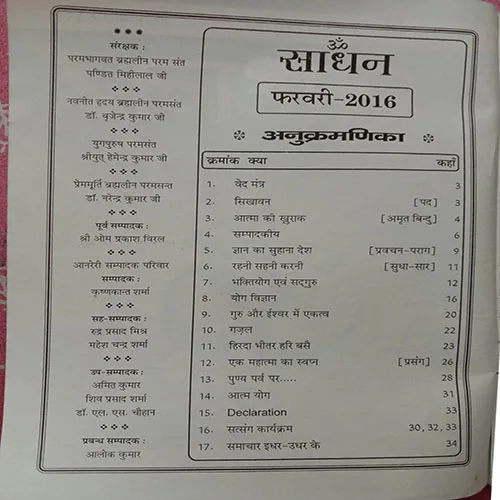 संरक्षक :
परमभागवत ब्रह्मलीन परम संत
पण्डित मिहीलाल जी
नवनीत हृदय ब्रह्मलीन परमसंत
डॉ. बृजेन्द्र कुमार जी
युगपुरुष परमसंत
श्रीयुत् हेमेन्द्र कुमार जी
प्रेममूर्ति ब्रह्मलीन परमसन्त
डॉ. नरेन्द्र कुमार जी
पूर्व सम्पादक :
श्री ओम प्रकाश विरल
आनरेरी सम्पादक परिवार
सम्पादक :
कृष्णकान्त शर्मा
सह-सम्पादक :
रुद्र प्रसाद मिश्र
महेश चन्द्र शर्मा
उप-सम्पादक :
अमित कुमार
शिव प्रसाद शर्मा
डॉ. एल. एस. चौहान
प्रबन्ध सम्पादक :
आलोक कुमार
ॐ
साधन
फरवरी-2016
अनुक्रमणिका
क्रमांक क्या कहाँ
1. वेद मंत्र 3
2. सिखावन [पद] 3
3. आत्मा की खुराक [अमृत बिन्दु] 4
4. सम्पादकीय 6
5. ज्ञान का सुहाना देश [प्रवचन-पराग] 9
6. रहनी सहनी करनी [सुधा-सार] 11
7. भक्तियोग एवं सद्गुरु 12
8. योग विज्ञान 16
9. गुरु और ईश्वर में एकत्व 20
10. गज़ल 22
11. हिरदा भीतर हरि बसै 23
12. एक महात्मा का स्वप्न [प्रसंग] 26
13. पुण्य पर्व पर..... 28
14. आत्म योग 31
15. Declaration 33
16. सत्संग कार्यक्रम 30, 32, 33
17. समाचार इधर-उधर के 34